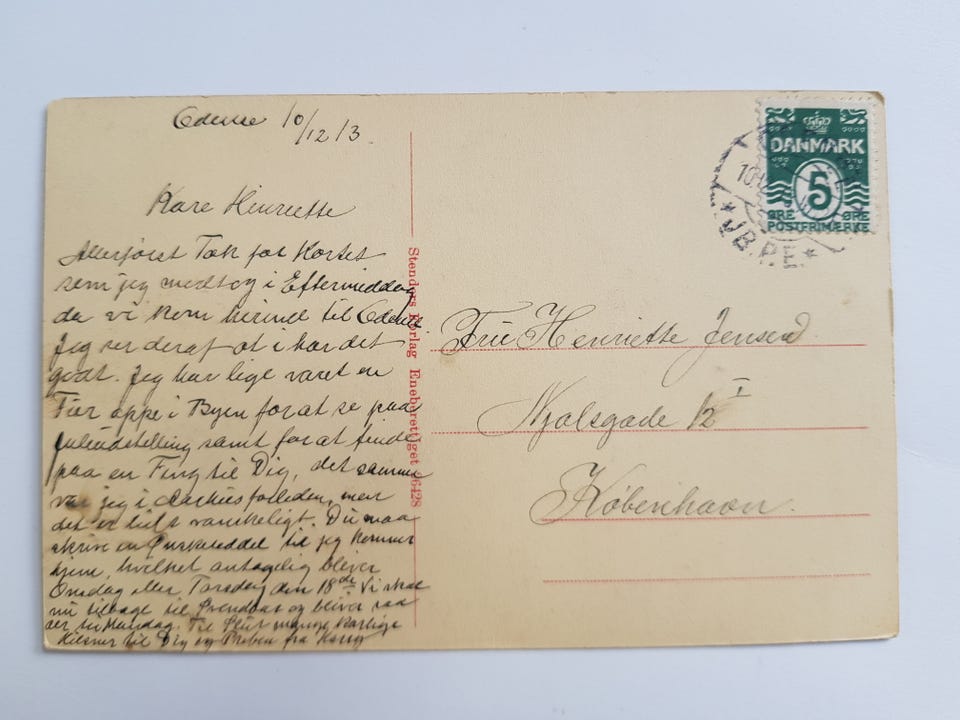 Odense 10/12 13.
Kære Henriette
Allerførst Tak for Kortet
som jeg modtog i Eftermiddag
da vi kom herind til Odense.
Jeg ser deraf at i har det
godt. Jeg har lige været en
Tur oppe i Byen for at se paa
Juleudstilling samt for at finde
paa en Ting til Dig, det samme
var jeg i Aarhus forleden, men
det er helt vanskeligt. Du maa
skrive en Ønskeseddel til jeg kommer
hjem, hvilket antagelig bliver
Onsdag eller Torsdag den 18de Vi skal
nu tilbage til og bliver saa
der til Mandag. Til Slut mange kærlige
Hilsner til Dig og fra
Stenders Forlag Eneberettiget
DANMARK
5
ØRE ØRE
POSTFRIMÆRKE
JB.P.E.
Frue Henriette Jensen
Njalsgade 12 I
København.